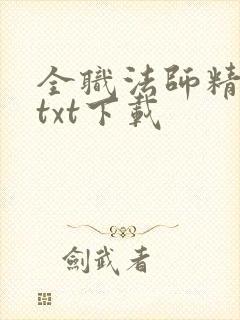 全職法師精
txt下載
劍武者